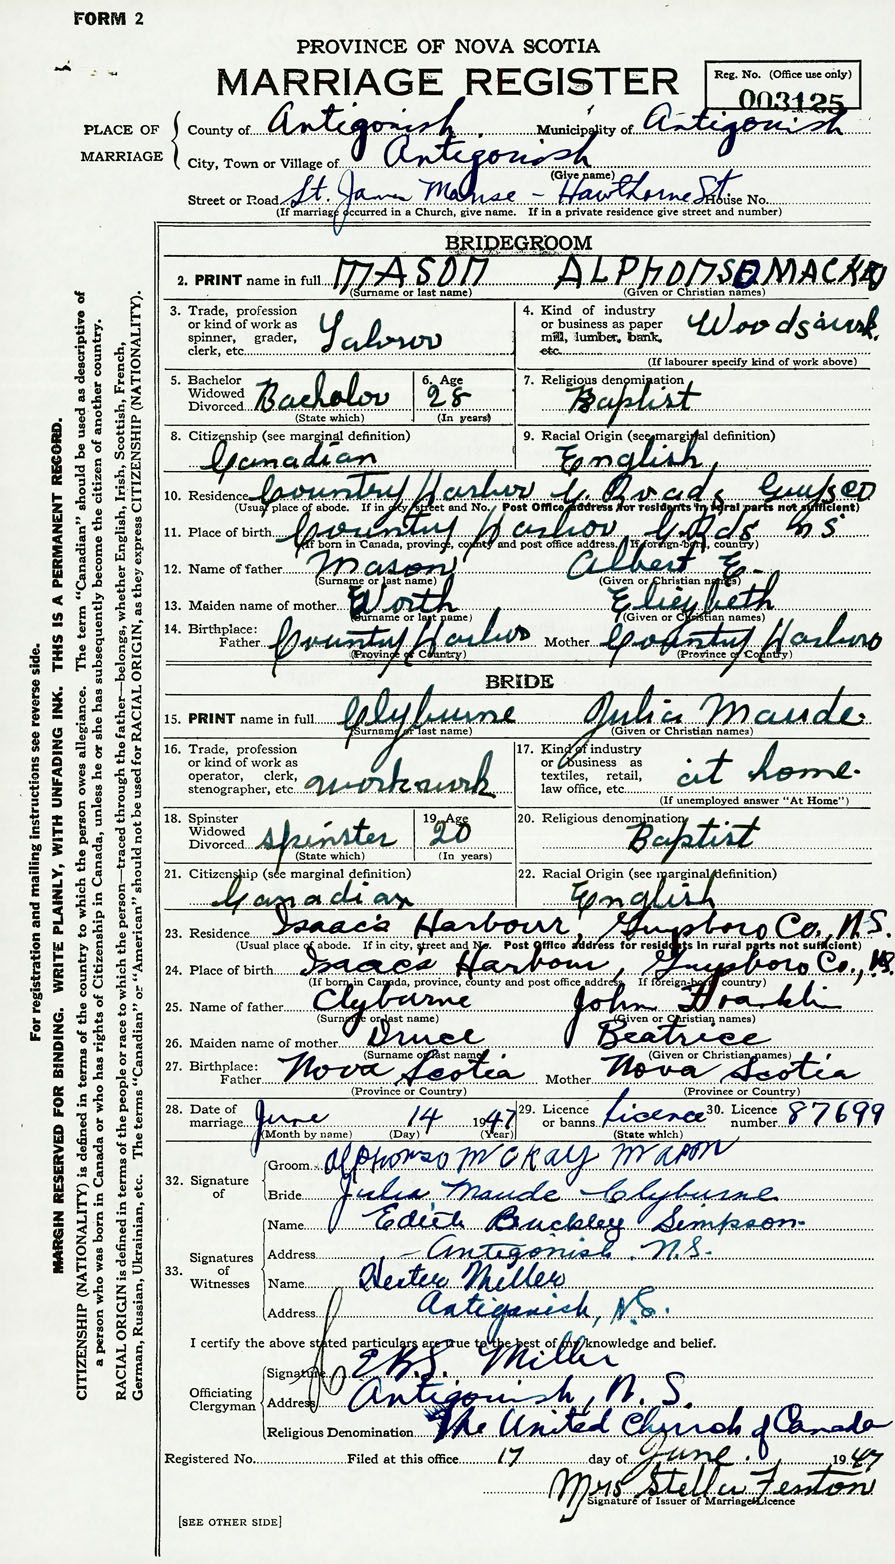 FORM 2
PROVINCE OF NOVA SCOTIA
MARRIAGE REGISTER
Reg. No. (Office use only)
003125
PLACE OF MARRIAGE
County of Antigonish Municipality of Antigonish
City, Town or Village of Antigonish
(Give name)
Street or Road St. James Manse - Hawthorne St. House No.
(If marriage occurred in a Church, give name. If in a private residence give street and number)
BRIDEGROOM
2. PRINT name in full MASON ALPHONSO MACKAY
(Surname or last name) (Given or Christian names)
3. Trade, profession or kind of work as spinner, grader, clerk, etc. Labour
4. Kind of industry or business as paper mill, lumber, bank, etc. Woods work.
(If labourer specify kind of work above)
5. Bachelor Widowed Divorced Bachelor
(State which)
6. Age 28
(In years)
7. Religious denomination Baptist
8. Citizenship (see marginal definition) Canadian
9. Racial Origin (see marginal definition) English
10. Residence Country Harbor X Roads Guys Co
(Usual place of abode. If in city street and No. Post Office address for residents in rural parts not sufficient)
11. Place of birth Country Harbor X Rds N S
(If born in Canada, province, county and post office address. If foreign-born, country)
12. Name of father Mason Albert E.
(Surname or last name) (Given or Christian names)
13. Maiden name of mother Worth Eliezbeth
(Surname or last name) (Given or Christian names)
14. Birthplace: Father Country Harbor Mother Country Harbor
(Province or Country) (Province or Country)
BRIDE
15. PRINT name in full Clyburne Julia Maude
(Surname or last name) (Given or Christian names)
16. Trade, profession or kind of work as operator, clerk, stenographer, etc.
17. Kind of industry or business as textiles, retail, law office, etc. at home.
(If unemployed answer "At Home")
18. Spinster Widowed Divorced spinster
(State which)
19. Age 20
(In years)
20. Religious denomination Baptist
21. Citizenship (see marginal definition) Canadian
22. Racial Origin (see marginal definition) English
23. Residence Isaac's Harbour, Guysboro Co., N.S.
(Usual place of abode. If in city, street and No. Post Office address for residents in rural parts not sufficient)
24. Place of birth Isaac's Harbour, Guysboro Co., N.S.
(If born in Canada, province, county and post office address. If foreign-born, country)
25. Name of father Clyburne John Franklin
(Surname or last name) (Given or Christian names)
26. Maiden name of mother Druce Beatrice
(Surname or last name) (Given or Christian names)
27. Birthplace: Father Nova Scotia Mother Nova Scotia
(Province or Country) (Province or Country)
28. Date of marriage June 14 1947
(Month by name) (Day) (Year)
29. Licence or banns. Licence
(State which)
30. Licence number 87699
32. Signature of
Groom Alphonso McKay Mason
Bride Julia Maude Clyburne
33. Signatures of Witnesses
Name Edith Buckley Simpson
Address Antigonish N.S.
Name Hester Miller
Address Antigonish, N.S.
I certify the above stated particulars are true to the best of my knowledge and belief.
Officiating Clergyman
Signature E.B.S. Miller
Address Antigonish, N.S.
Religious Denomination The United Church of Canada
Registered No. Filed at this office 17 day of June 1947
Mrs Stella Fenton
Signature of Issuer of Marriage Licence
[SEE OTHER SIDE]
For registration and mailing instructions see reverse side.
MARGIN RESERVED FOR BINDING. WRITE PLAINLY, WITH UNFADING INK. THIS IS A PERMANENT RECORD.
CITIZENSHIP (NATIONALITY) is defined in terms of the country to which the person owes allegiance. The term "Canadian" should be used as descriptive of
a person who was born in Canada or who has rights of Citizenship in Canada, unless he or she has subsequently become the citizen of another country.
RACIAL ORIGIN is defined in terms of the people or race to which the person—traced through the father—belongs, whether English, Irish, Scottish, French,
German, Russian, Ukrainian, etc. The terms "Canadian" or "American" should not be used for RACIAL ORIGIN, as they express CITIZENSHIP (NATIONALITY).